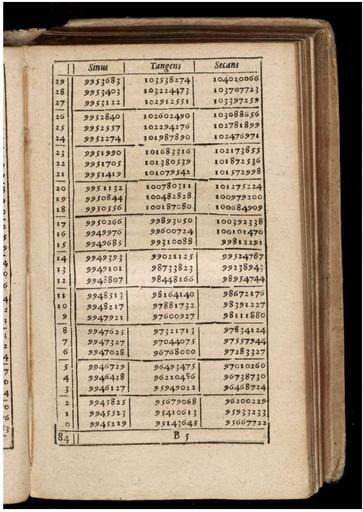 Sinus Tangens Secans
29 9953683 103538274 104020066
28 9953403 103224473 103707723
27 9953122 102912551 103397259
26 9952840 102602490 103088656
25 9952557 102294276 102781899
24 9952274 101987890 102476971
23 9951990 101683316 102173855
22 9951705 101380539 101872536
21 9951419 101079542 101572998
20 9951132 100780311 101275224
19 9950844 100482828 100979200
18 9950556 100187080 100684909
17 9950266 99893050 100392338
16 9949976 99600724 100101470
15 9949685 99310088 99812291
14 9949393 99021125 99524787
13 9949101 98733823 99238943
12 9948807 98448166 98954744
11 9948513 98164140 98672176
10 9948217 97881732 98391227
9 9947921 97600927 98111880
8 9947625 97321713 97834124
7 9947327 97044075 97557944
6 9947028 96768000 97283327
5 9946729 96493475 97010260
4 9946428 96210486 96738730
3 9946127 95949022 96468724
2 9945825 95679068 96200229
1 9945523 95410613 95933233
0 9945219 95143645 95667722
84 B 5